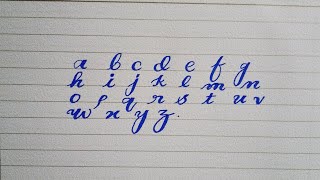 a b c d e f g
h i j k l m n
o p q r s t u v
w x y z.